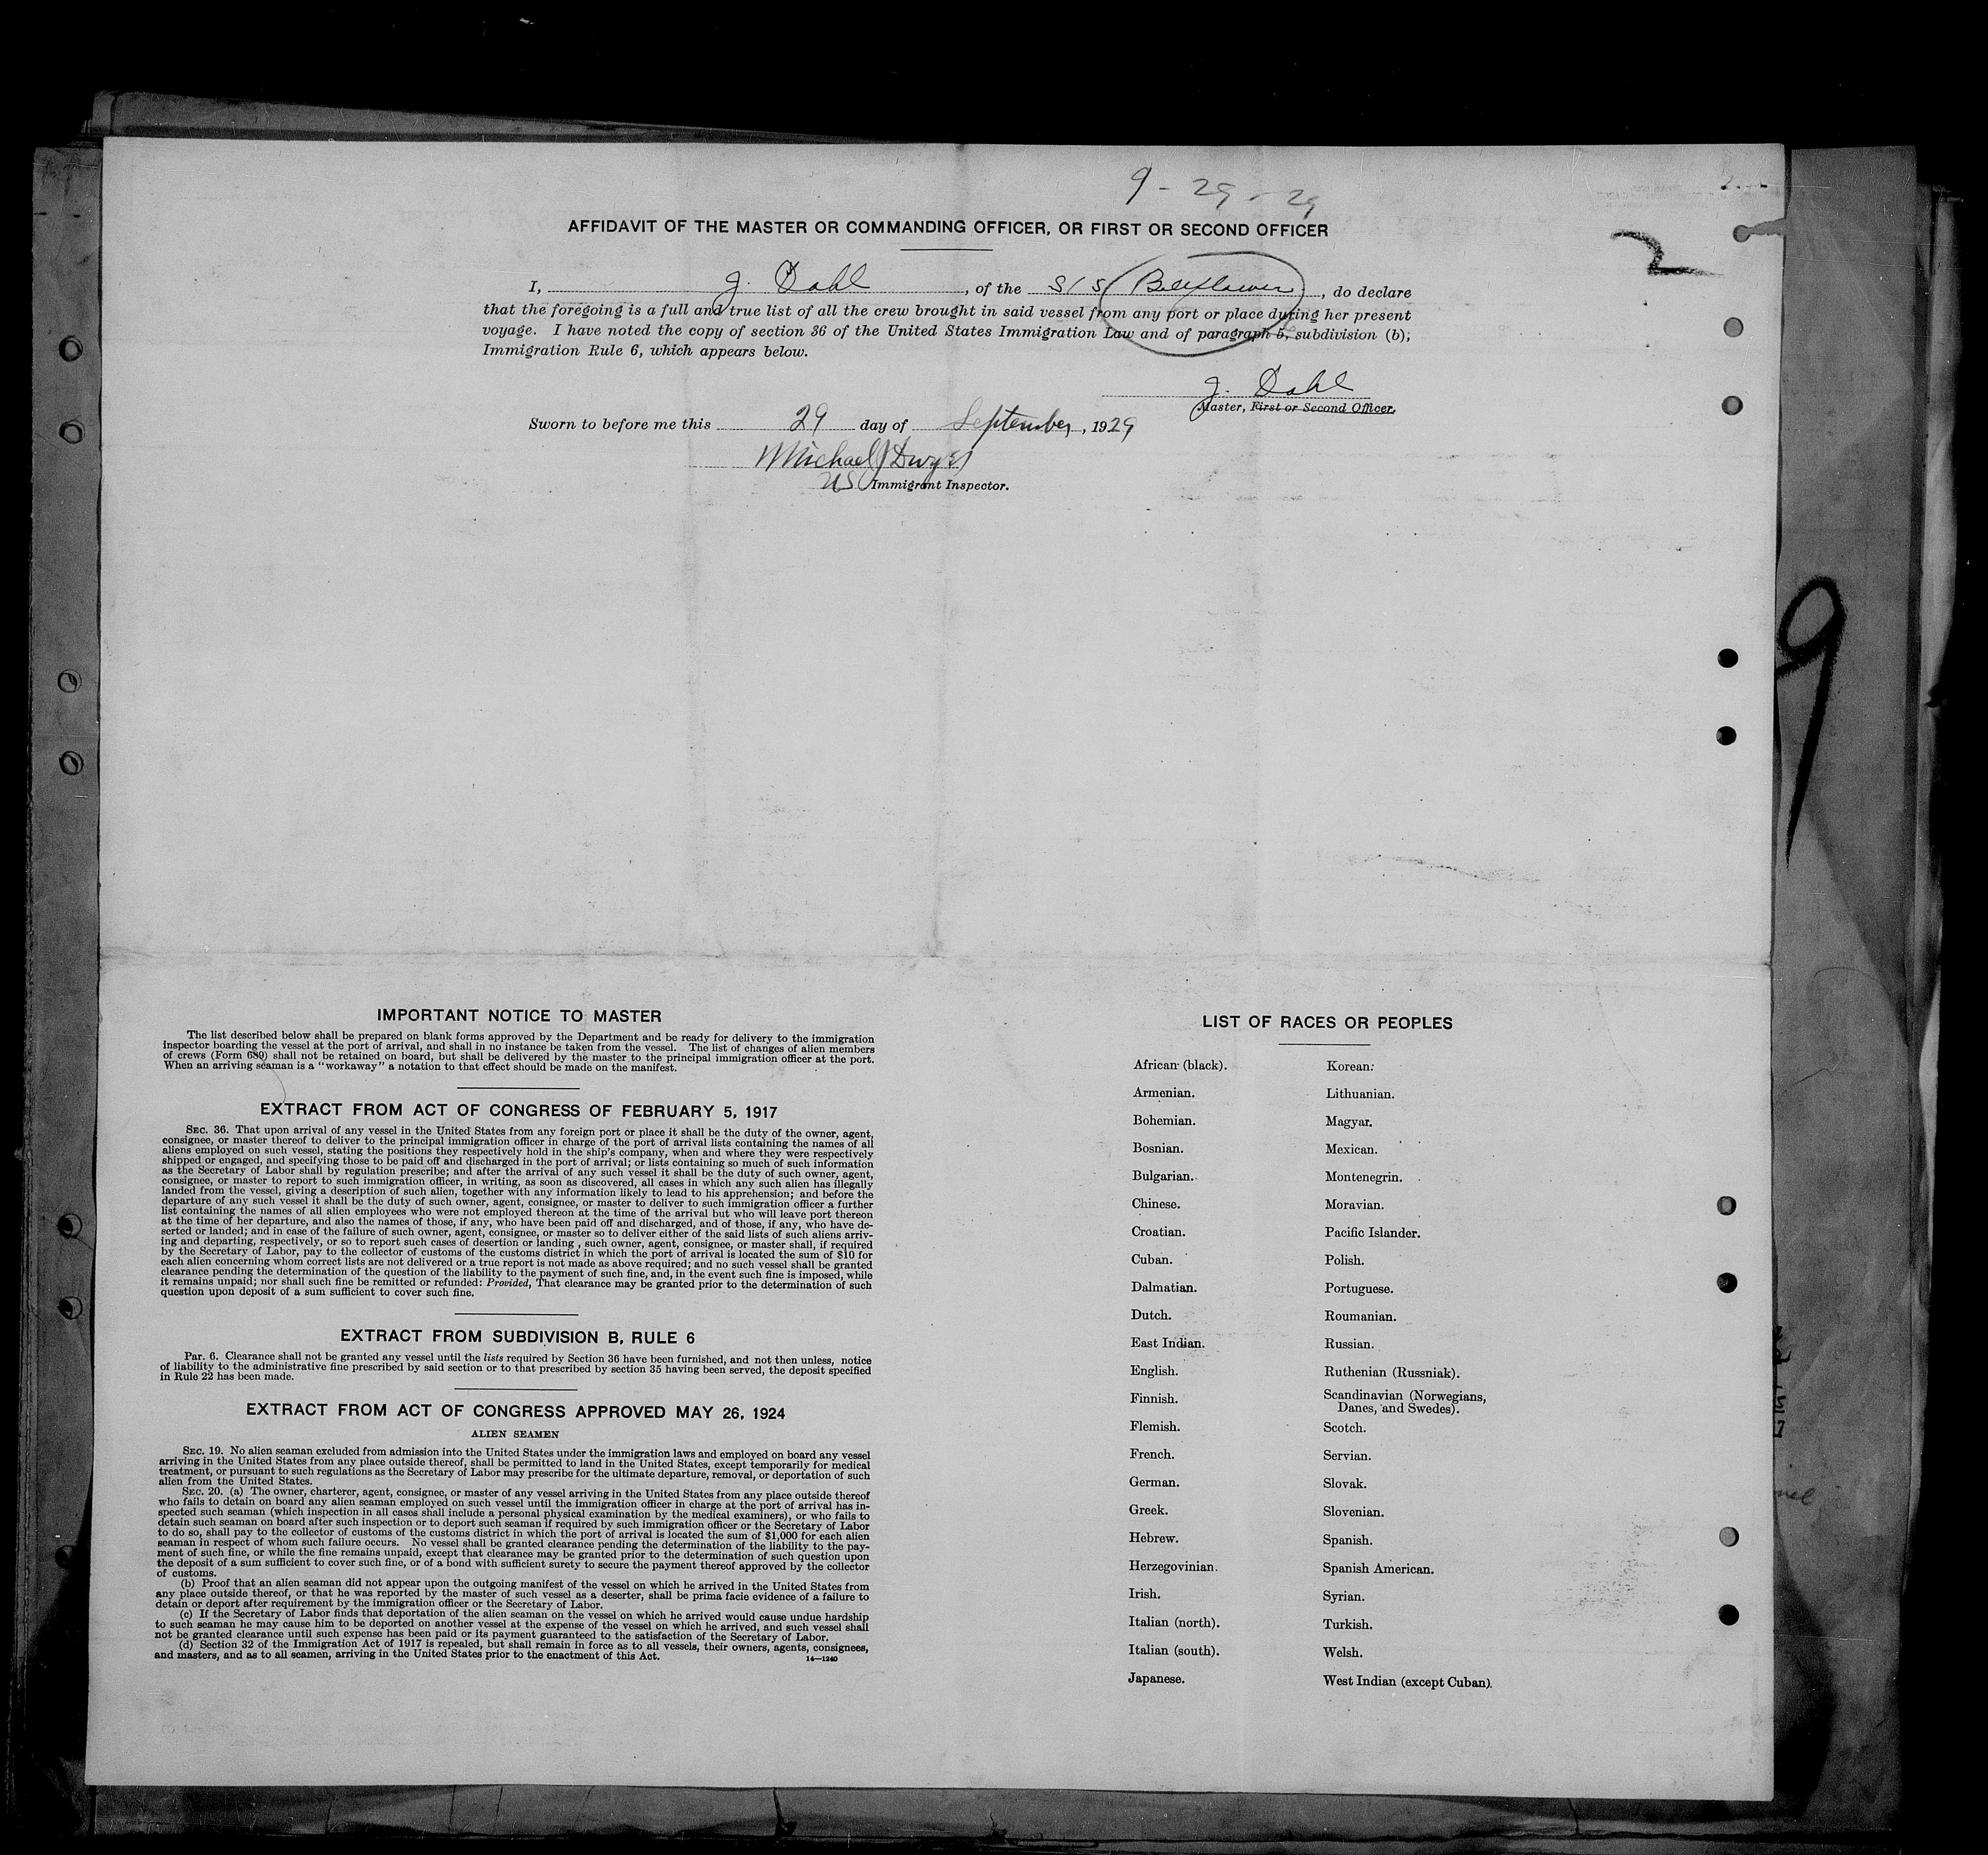 9 - 29 - 29
2
AFFIDAVIT OF THE MASTER OR COMMANDING OFFICER, OR FIRST OR SECOND OFFICER
I, J. Dahl, of the S/S Bellflower, do declare
that the foregoing is a full and true list of all the crew brought in said vessel from any port or place during her present
voyage. I have noted the copy of section 36 of the United States Immigration Law and of paragraph 5, subdivision (b),
Immigration Rule 6, which appears below.
J. Dahl
Master, First or Second Officer.
Sworn to before me this 29 day of September, 1929
Michael J Dwyer
US Immigrant Inspector.
9
IMPORTANT NOTICE TO MASTER
The list described below shall be prepared on blank forms approved by the Department and be ready for delivery to the immigration
inspector boarding the vessel at the port of arrival, and shall in no instance be taken from the vessel. The list of changes of alien members
of crews (Form 689) shall not be retained on board, but shall be delivered by the master to the principal immigration officer at the port.
When an arriving seaman is a "workaway" a notation to that effect should be made on the manifest.
EXTRACT FROM ACT OF CONGRESS OF FEBRUARY 5, 1917
SEC. 36. That upon arrival of any vessel in the United States from any foreign port or place it shall be the duty of the owner, agent,
consignee, or master thereof to deliver to the principal immigration officer in charge of the port of arrival lists containing the names of all
aliens employed on such vessel, stating the positions they respectively hold in the ship's company, when and where they were respectively
shipped or engaged, and specifying those to be paid off and discharged in the port of arrival; or lists containing so much of such information
as the Secretary of Labor shall by regulation prescribe; and after the arrival of any such vessel it shall be the duty of such owner, agent,
consignee, or master to report to such immigration officer, in writing, as soon as discovered, all cases in which any such alien has illegally
landed from the vessel, giving a description of such alien, together with any information likely to lead to his apprehension; and before the
departure of any such vessel it shall be the duty of such owner, agent, consignee, or master to deliver to such immigration officer a further
list containing the names of all alien employees who were not employed thereon at the time of the arrival but who will leave port thereon
at the time of her departure, and also the names of those, if any, who have been paid off and discharged, and of those, if any, who have de-
serted or landed; and in case of the failure of such owner, agent, consignee, or master so to deliver either of the said lists of such aliens arriv-
ing and departing, respectively, or so to report such cases of desertion or landing , such owner, agent, consignee, or master shall, if required
by the Secretary of Labor, pay to the collector of customs of the customs district in which the port of arrival is located the sum of $10 for
each alien concerning whom correct lists are not delivered or a true report is not made as above required; and no such vessel shall be granted
clearance pending the determination of the question of the liability to the payment of such fine, and, in the event such fine is imposed, while
it remains unpaid; nor shall such fine be remitted or refunded: Provided, That clearance may be granted prior to the determination of such
question upon deposit of a sum sufficient to cover such fine.
EXTRACT FROM SUBDIVISION B, RULE 6
Par. 6. Clearance shall not be granted any vessel until the lists required by Section 36 have been furnished, and not then unless, notice
of liability to the administrative fine prescribed by said section or to that prescribed by section 35 having been served, the deposit specified
in Rule 22 has been made.
EXTRACT FROM ACT OF CONGRESS APPROVED MAY 26, 1924
ALIEN SEAMEN
SEC. 19. No alien seaman excluded from admission into the United States under the immigration laws and employed on board any vessel
arriving in the United States from any place outside thereof, shall be permitted to land in the United States, except temporarily for medical
treatment, or pursuant to such regulations as the Secretary of Labor may prescribe for the ultimate departure, removal, or deportation of such
alien from the United States.
SEC. 20. (a) The owner, charterer, agent, consignee, or master of any vessel arriving in the United States from any place outside thereof
who fails to detain on board any alien seaman employed on such vessel until the immigration officer in charge at the port of arrival has in-
spected such seaman (which inspection in all cases shall include a personal physical examination by the medical examiners), or who fails to
detain such seaman on board after such inspection or to deport such seaman if required by such immigration officer or the Secretary of Labor
to do so, shall pay to the collector of customs of the customs district in which the port of arrival is located the sum of $1,000 for each alien
seaman in respect of whom such failure occurs. No vessel shall be granted clearance pending the determination of the liability to the pay-
ment of such fine, or while the fine remains unpaid, except that clearance may be granted prior to the determination of such question upon
the deposit of a sum sufficient to cover such fine, or of a bond with sufficient surety to secure the payment thereof approved by the collector
of customs.
(b) Proof that an alien seaman did not appear upon the outgoing manifest of the vessel on which he arrived in the United States from
any place outside thereof, or that he was reported by the master of such vessel as a deserter, shall be prima facie evidence of a failure to
detain or deport after requirement by the immigration officer or the Secretary of Labor.
(c) If the Secretary of Labor finds that deportation of the alien seaman on the vessel on which he arrived would cause undue hardship
to such seaman he may cause him to be deported on another vessel at the expense of the vessel on which he arrived, and such vessel shall
not be granted clearance until such expense has been paid or its payment guaranteed to the satisfaction of the Secretary of Labor.
(d) Section 32 of the Immigration Act of 1917 is repealed, but shall remain in force as to all vessels, their owners, agents, consignees,
and masters, and as to all seamen, arriving in the United States prior to the enactment of this Act.
14—1240
LIST OF RACES OR PEOPLES
African (black).
Armenian.
Bohemian.
Bosnian.
Bulgarian.
Chinese.
Croatian.
Cuban.
Dalmatian.
Dutch.
East Indian.
English.
Finnish.
Flemish.
French.
German.
Greek.
Hebrew.
Herzegovinian.
Irish.
Italian (north).
Italian (south).
Japanese.
Korean.
Lithuanian.
Magyar.
Mexican.
Montenegrin.
Moravian.
Pacific Islander.
Polish.
Portuguese.
Roumanian.
Russian.
Ruthenian (Russniak).
Scandinavian (Norwegians,
Danes, and Swedes).
Scotch.
Servian.
Slovak.
Slovenian.
Spanish.
Spanish American.
Syrian.
Turkish.
Welsh.
West Indian (except Cuban).